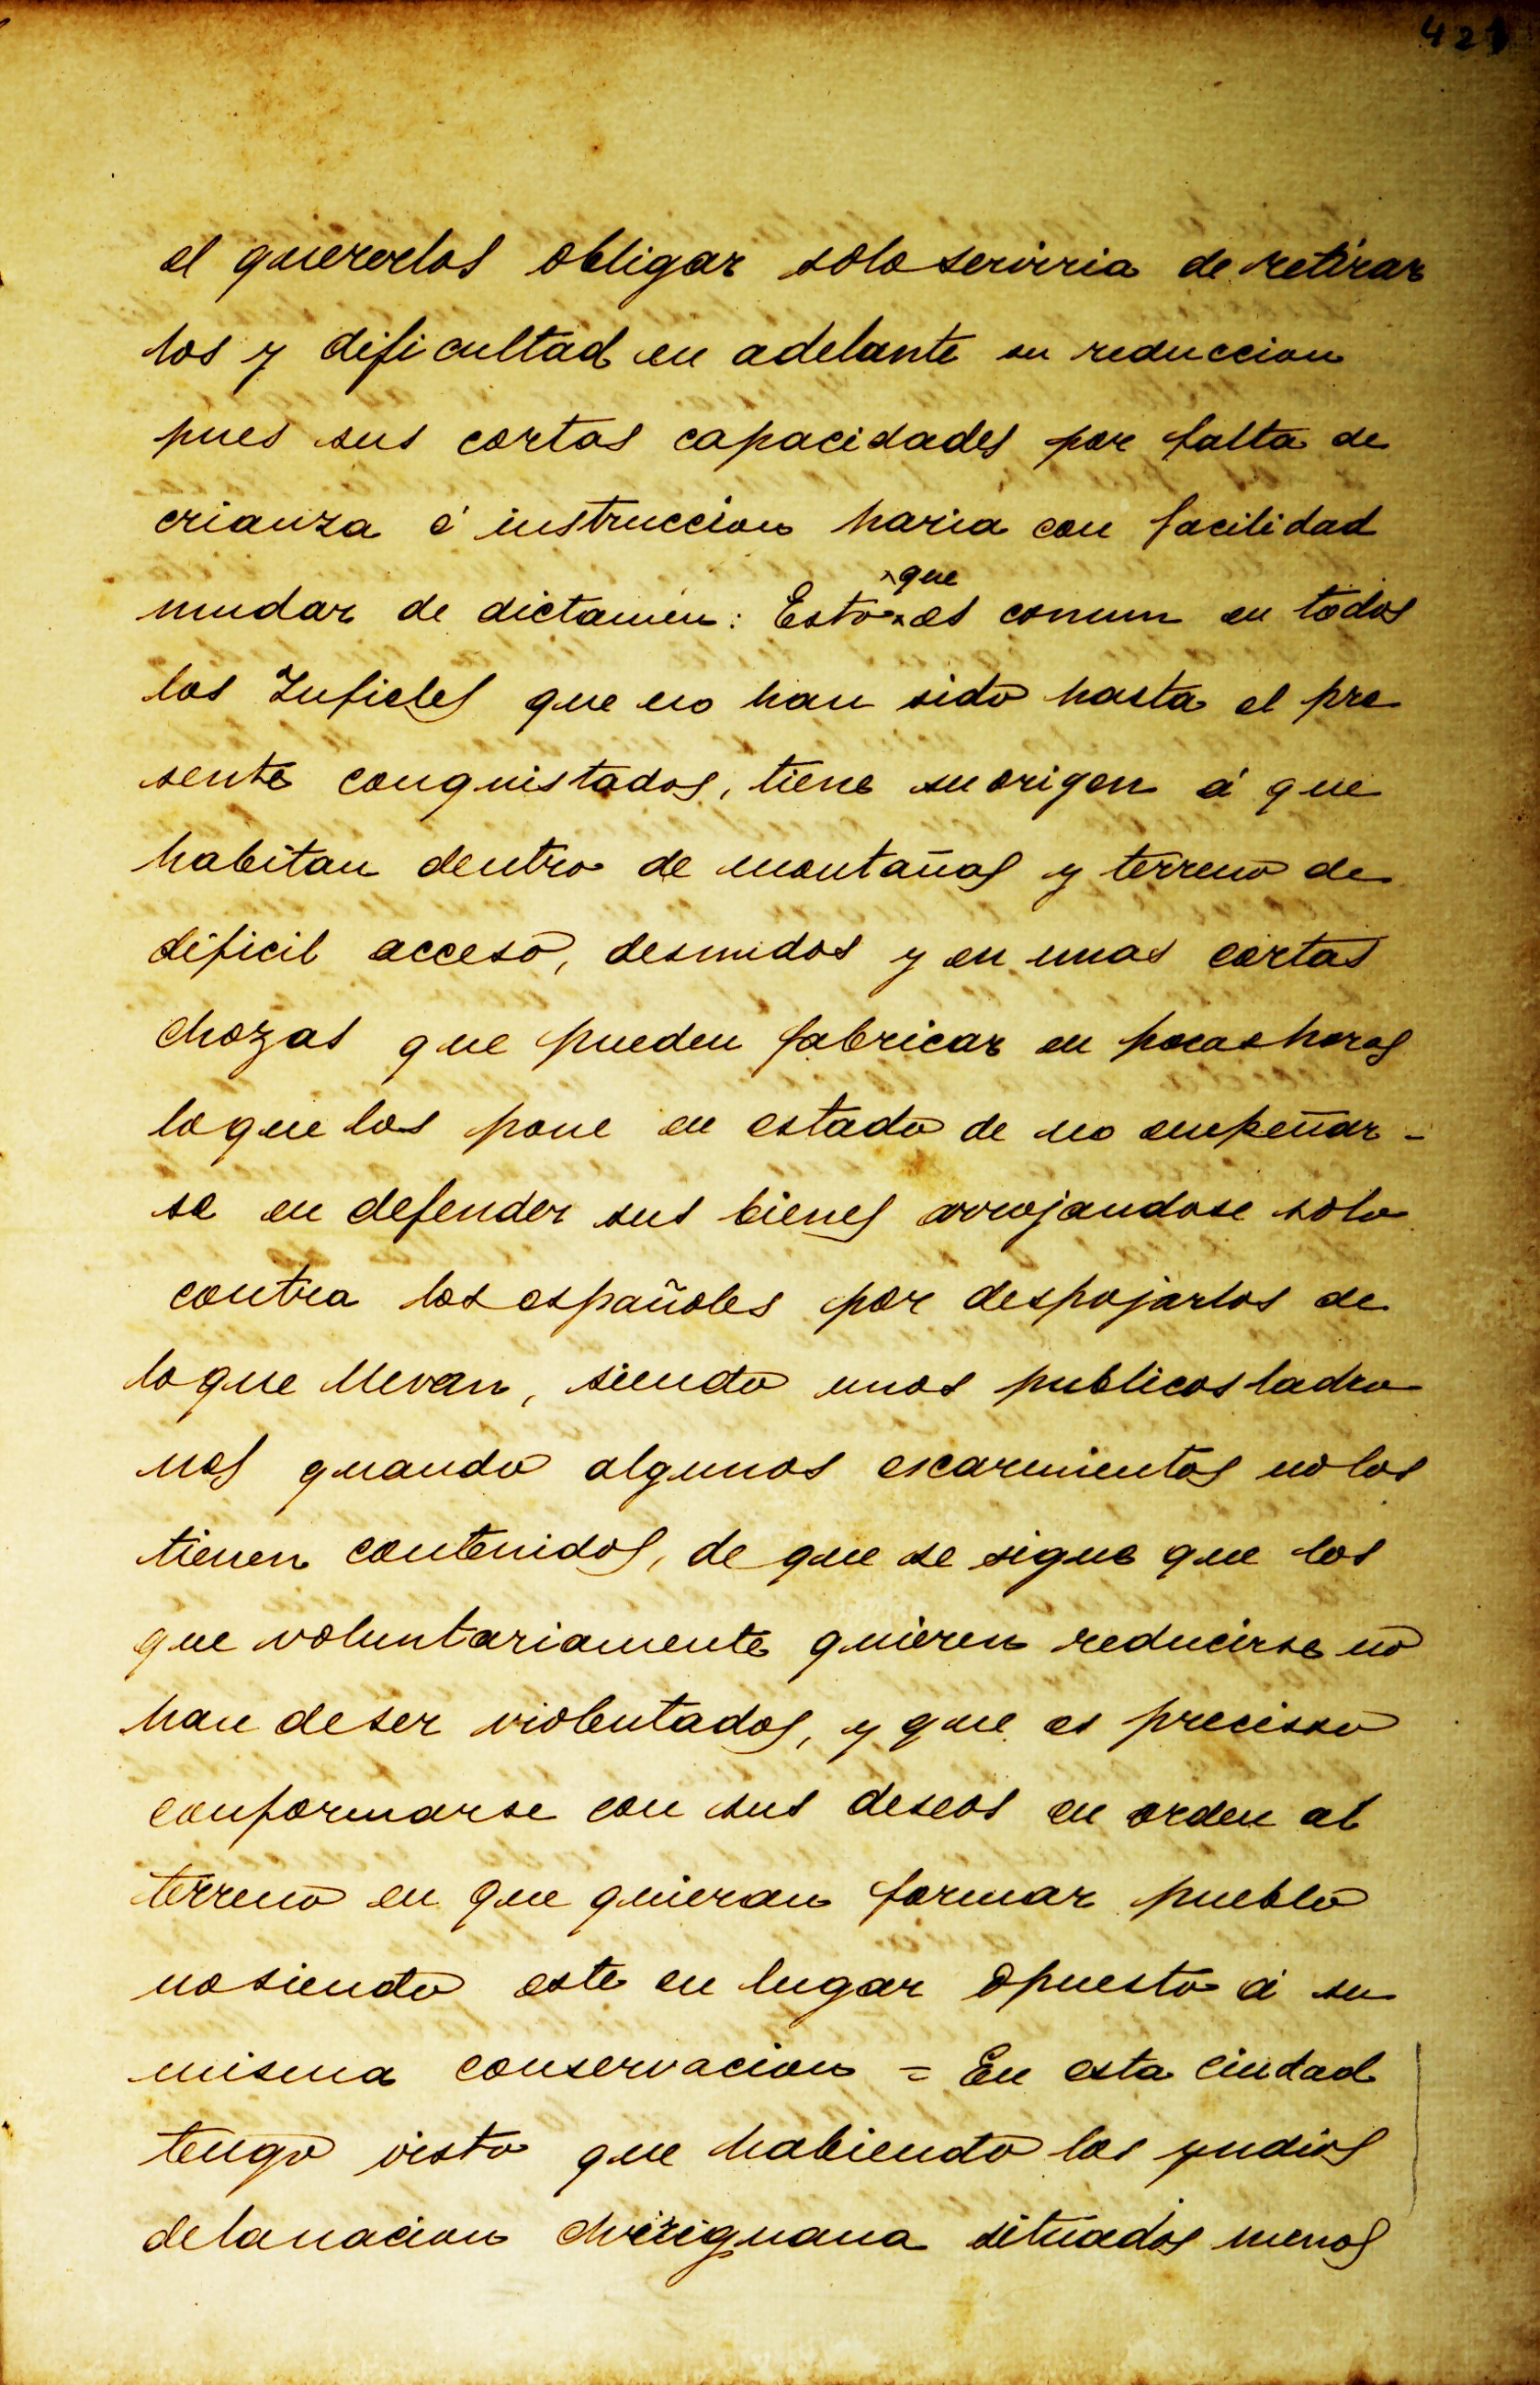 el quererlos obligar solo serviria de retirar
los y dificultad en adelante su reduccion
pues sus cortas capacidades por falta de
crianza é instruccion haria con facilidad
mudar de dictamen: Esto que es comun en todos
los Infieles que no han sido hasta el pre
sente conquistados, tiene su origen á que
habitan dentro de montañas y terreno de
dificil acceso, desnudos y en unas cortas
chozas que pueden fabricar en pocas horas
lo que los pone en estado de no empeñar-
se en defender sus bienes arrojandose solo
contra los españoles por despojarlos de
lo que llevan, siendo unos publicos ladro
nes quando algunos escarmientos no los
tienen contenidos, de que se sigue que los
que voluntariamente quieren reducirse no
han de ser violentados, y que es precisso
conformarse con sus deseos en orden al
terreno en que quieran formar pueblo
no siendo este en lugar opuesto á su
misma conservacion = En esta ciudad
tengo visto que habiendo los yndios
de la nacion chiriguana situados menos